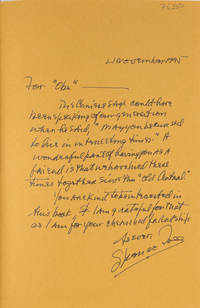 For "Obie" —
The Chinese sage could have
been speaking of our generation
when he said, "May you be cursed
to live in interesting times." A
wonderful part of having you as a
friend is that we have lived these
times together since the "Old Central."
You are kind to be interested in
this book & I am grateful for that
as I am for your cherished friendship
As ever